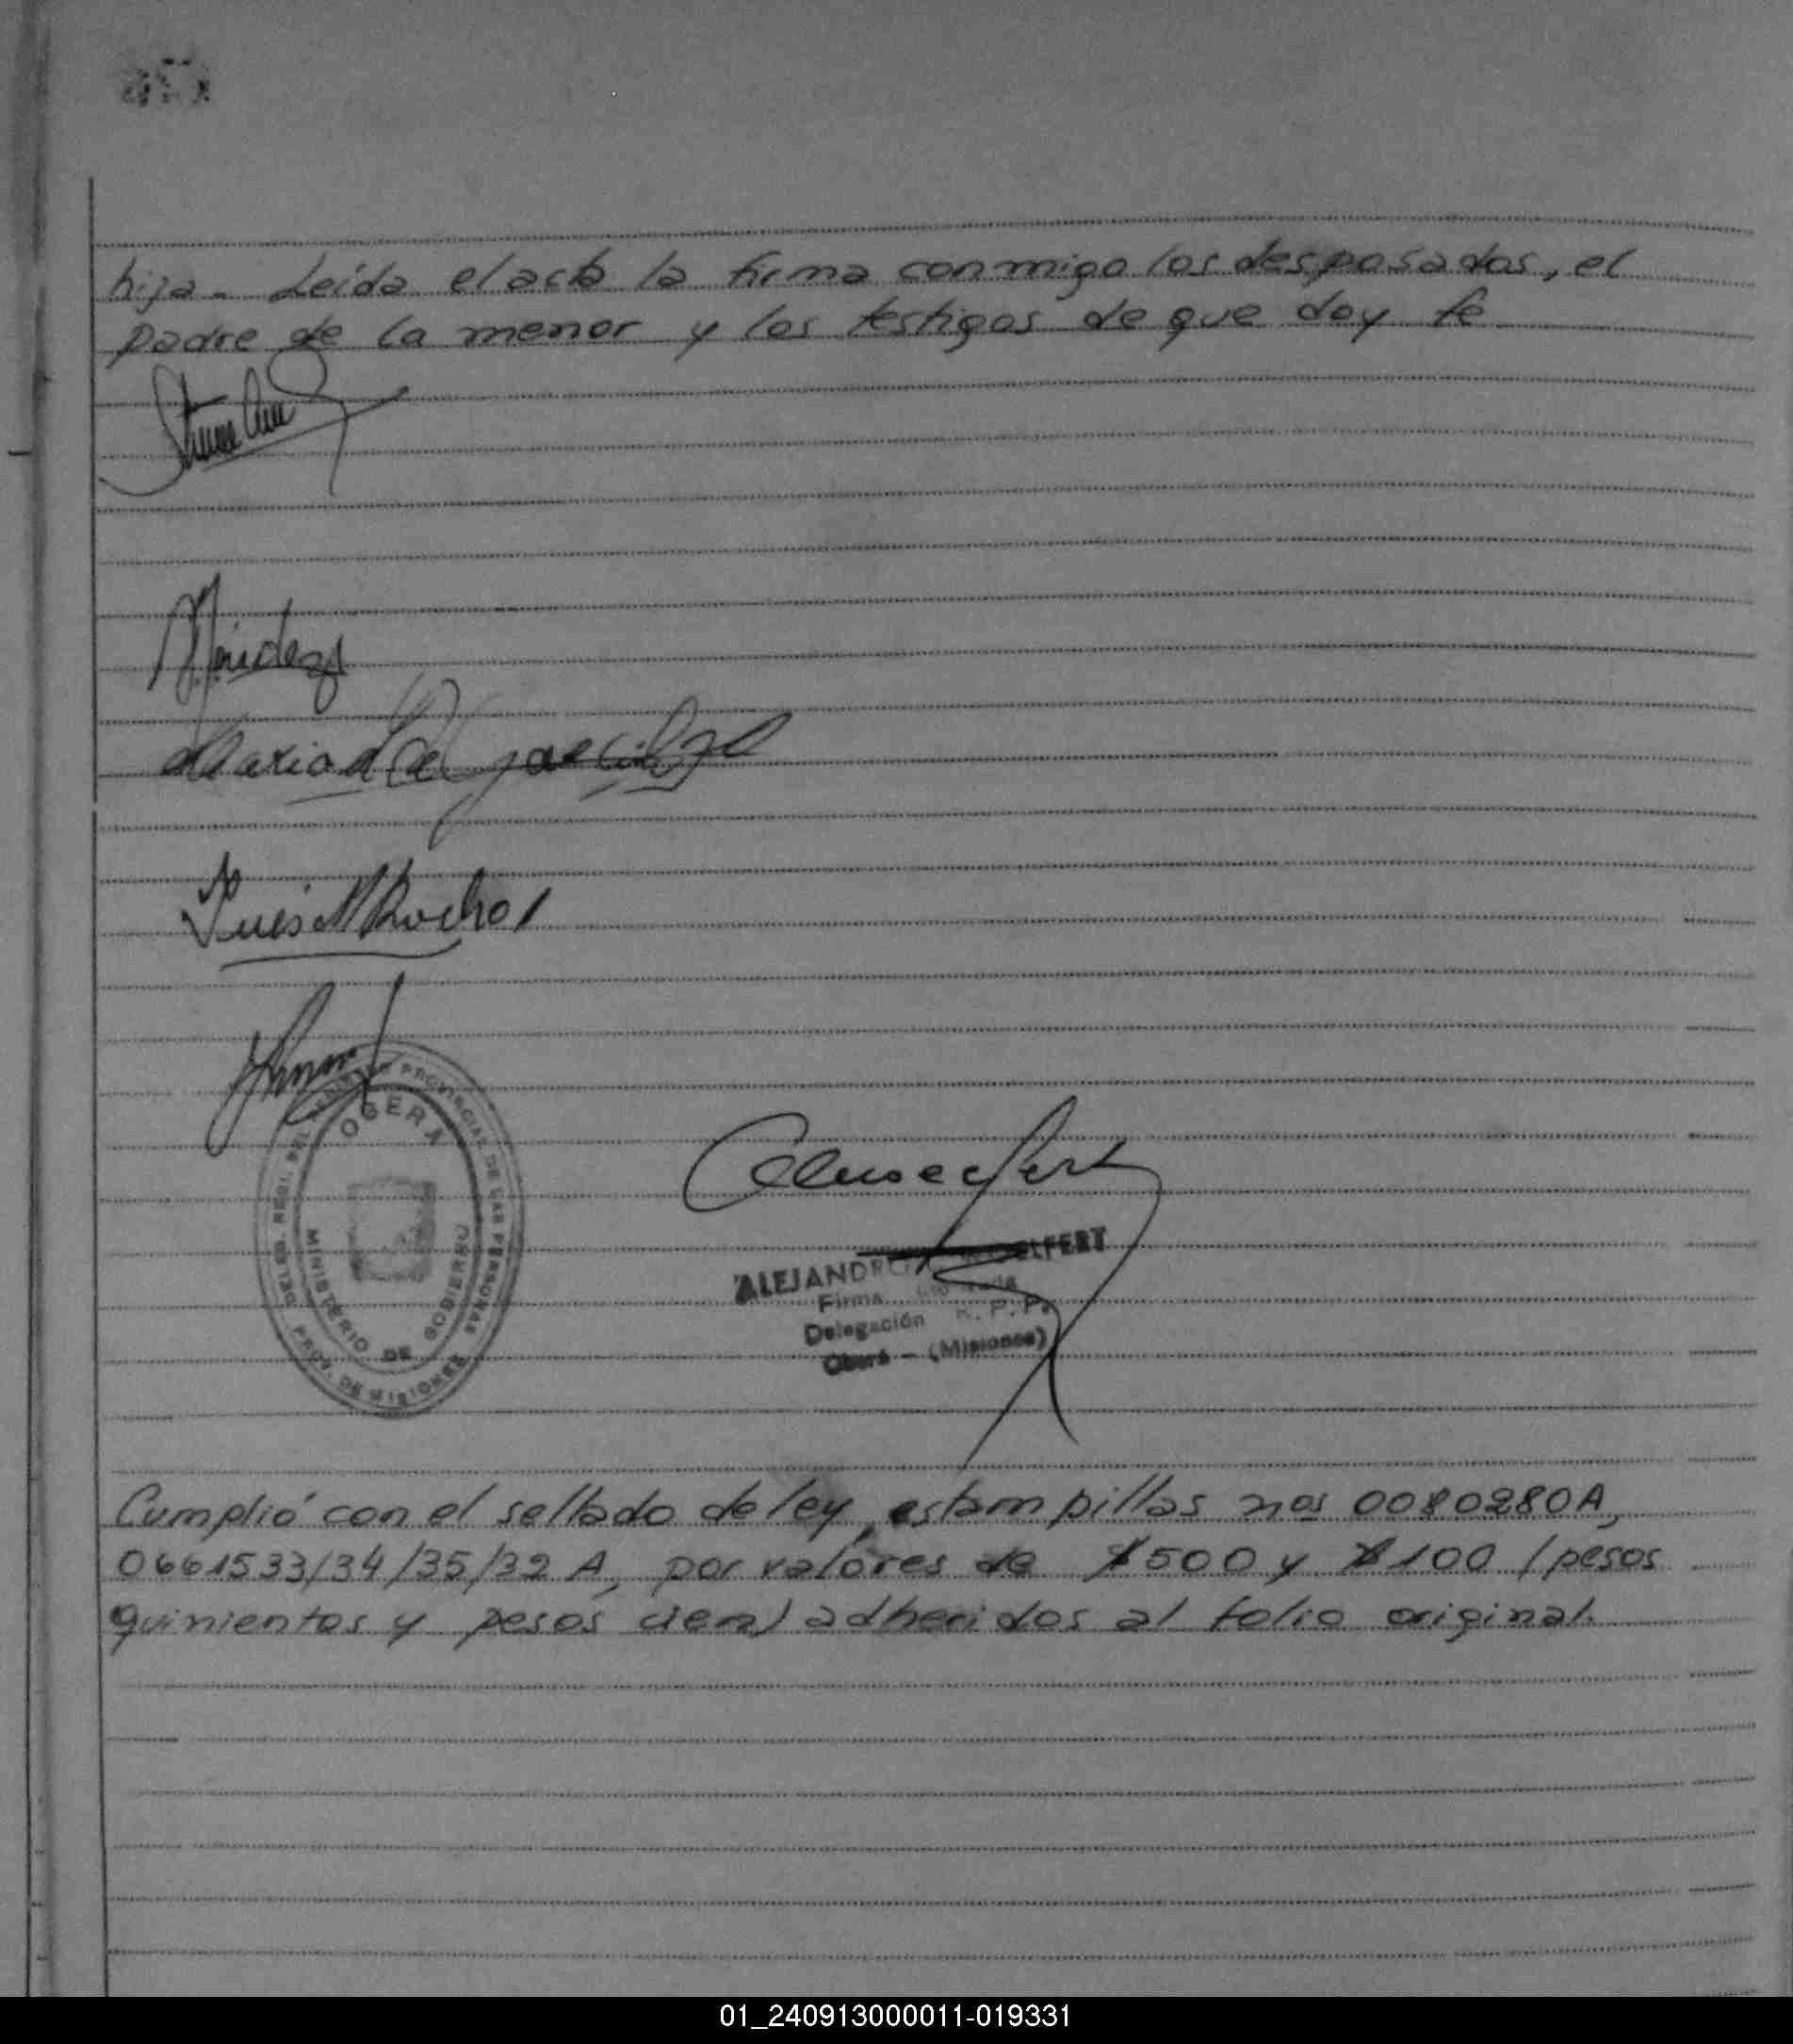 hija.- Leída el acta la firma conmigo los desposados, el
padre de la menor y los testigos de que doy fe
Méndez
Luis A Rocha
PROVINCIAL DE LAS PERSONAS
OBERA
MINISTERIO DE GOBIERNO
PROV. DE MISIONES
ALEJANDRO ELFERT
Firma
Delegación R. P. P.
Oberá - (Misiones)
Cumplió con el sellado de ley, estampillas nos 0080280A,
0661533/34/35/32 A, por valores de $500 y $100 (pesos
quinientos y pesos cien) adheridos al folio original.
01_240913000011-019331